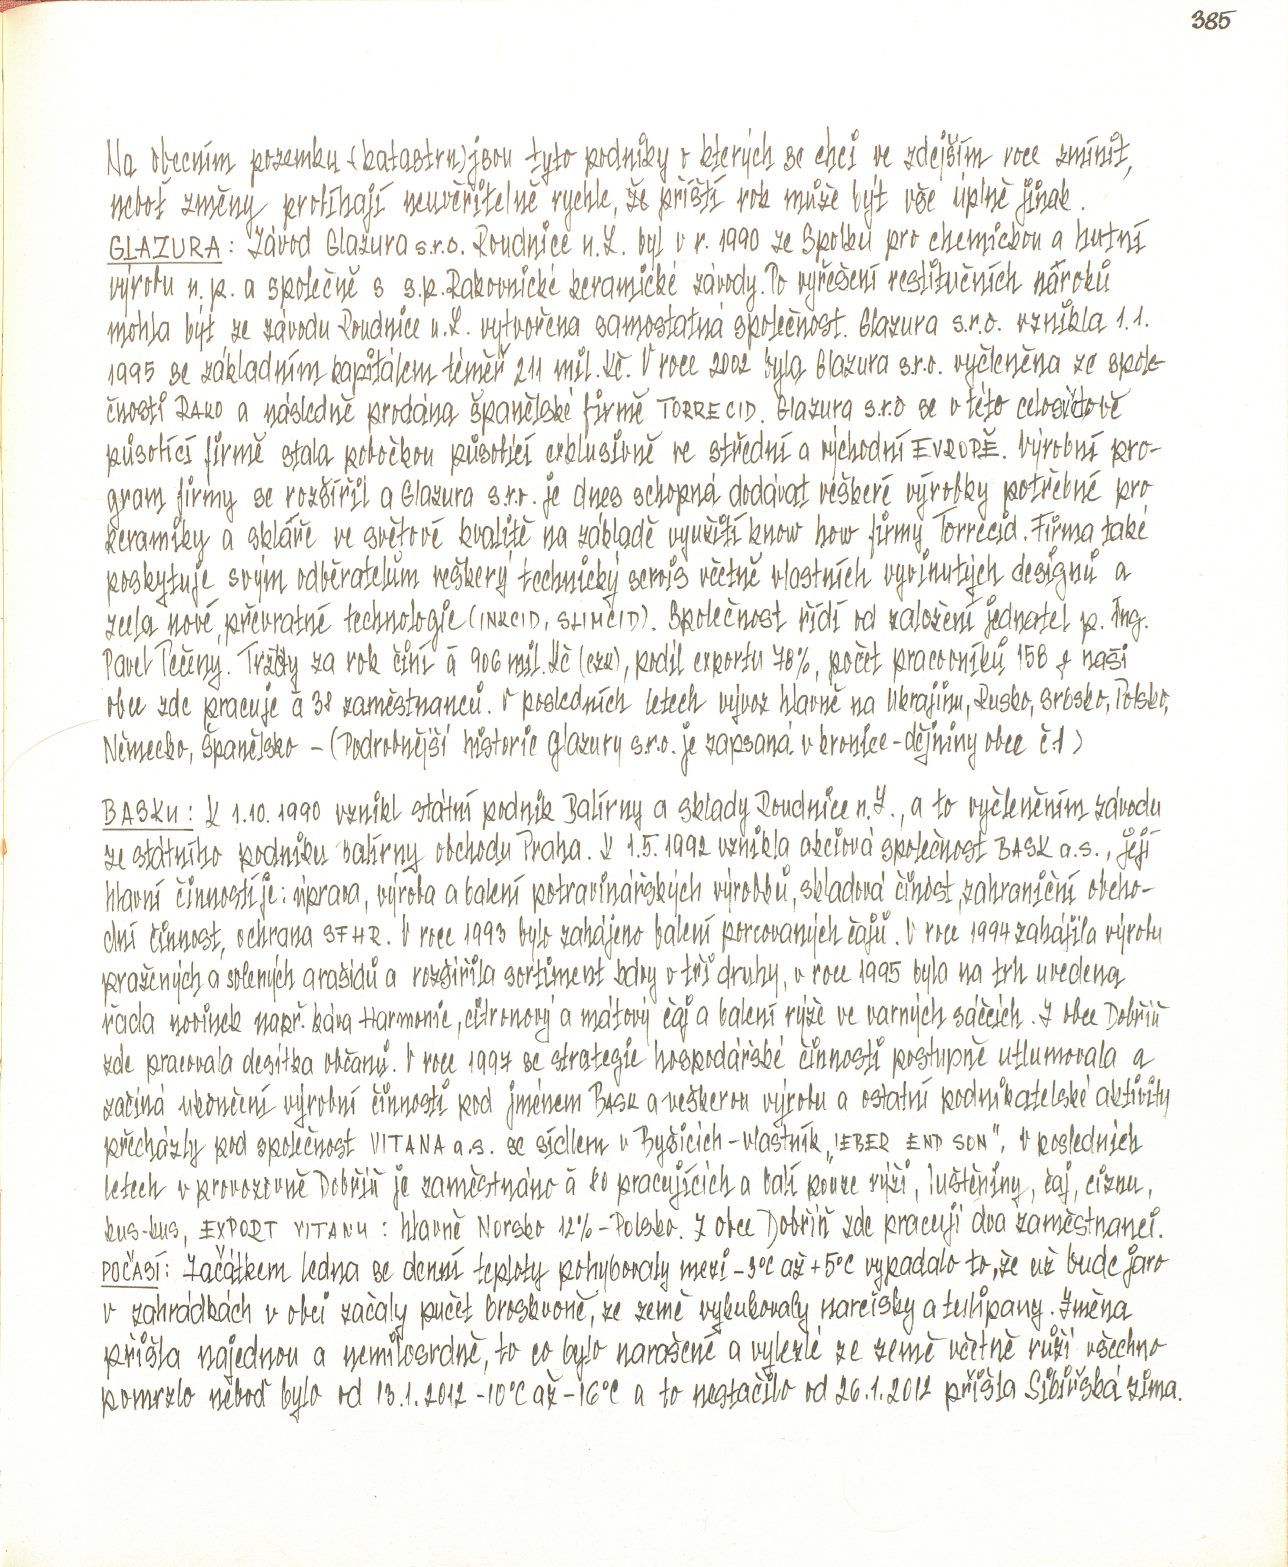 385
Na obecním pozemku (katastru) jsou tyto podniky o kterých se chci ve zdejším roce zmínit,
neboť změny probíhají neuvěřitelně rychle, že příští rok může být vše úplně jinak.
GLAZURA: Závod Glazura s.r.o. Roudnice n.L. byl v r. 1990 ze Spolku pro chemickou a hutní
výrobu n.p. a společně s s.p. Rakovnické keramické závody. Po vyřešení restitučních nároků
mohla být ze závodu Roudnice n.L. vytvořena samostatná společnost. Glazura s.r.o. vznikla 1.1.
1995 se základním kapitálem téměř 211 mil. Kč. V roce 2002 byla Glazura s.r.o. vyčleněna ze spole-
čnosti RAKO a následně prodána Španělské firmě TORRECID. Glazura s.r.o se v této celosvětově
působící firmě stala pobočkou působící exklusivně ve střední a východní EVROPĚ. Výrobní pro-
gram firmy se rozšířil a Glazura s.r.o. je dnes schopná dodávat veškeré výrobky potřebné pro
keramiky a skláře ve světové kvalitě na základě využití know how firmy Torrecid. Firma také
poskytuje svým odběratelům veškerý technický servis včetně vlastních vyvinutých designů a
zcela nové, převratné technologie (INKCID, SLIMCID). Společnost řídí od založení jednatel p. Ing.
Pavel Pečený. Tržby za rok činí á 906 mil. Kč (czk), podíl exportu 78%, počet pracovníků 158 z naší
obce zde pracuje á 38 zaměstnanců. V posledních letech vývoz hlavně na Ukrajinu, Rusko, Srbsko, Polsko,
Německo, Španělsko – (Podrobnější historie Glazury s.r.o. je zapsaná v kronice - dějniny obce č.1)
BASKu: K 1.10.1990 vznikl státní podnik Balírny a sklady Roudnice n.L., a to vyčleněním závodu
ze státního podniku balírny obchodu Praha. K 1.5.1992 vznikla akciová společnost BASK a.s., její
hlavní činností je: úprava, výroba a balení potravinářských výrobků, skladová činost, zahraniční obcho-
dní činnost, ochrana SFHR. V roce 1993 bylo zahájeno balení porcovaných čajů. V roce 1994 zahájila výrobu
pražených a solených arašídů a rozšířila sortiment kávy o tři druhy, v roce 1995 byla na trh uvedena
řada novinek např. káva Harmonie, citronový a mátový čaj a balení rýže ve varných sáčcích. Z obce Dobříň
zde pracovala desítka občanů. V roce 1997 se strategie hospodářské činnosti postupně utlumovala a
začíná ukončení výrobní činnosti pod jménem BASK a veškerou výrobu a ostatní podnikatelské aktivity
přecházly pod společnost VITANA a.s. se sídlem v Byšicích - vlastník „IEBER END SON“. V posledních
letech v provozovně Dobříň je zaměstnáno á 20 pracujících a balí pouze rýži, luštěniny, čaj, ciznu,
kus-kus, EXPORT VITANU: hlavně Norsko 12% - Polsko. Z obce Dobříň zde pracují dva zaměstnanci.
POČASÍ: Začátkem ledna se denní teploty pohybovaly mezi -3°C až +5°C vypadalo to, že už bude jaro
v zahrádkách v obci začaly pučet broskvoně, ze země vykukovaly narcisky a tulipany. Změna
přišla najednou a nemilosrdně, to co bylo narašené a vylezlé ze země včetně růží všechno
pomrzlo neboď bylo od 13.1.2012 -10°C až -16°C a to nestačilo od 26.1.2012 přišla Sibiřská zima.